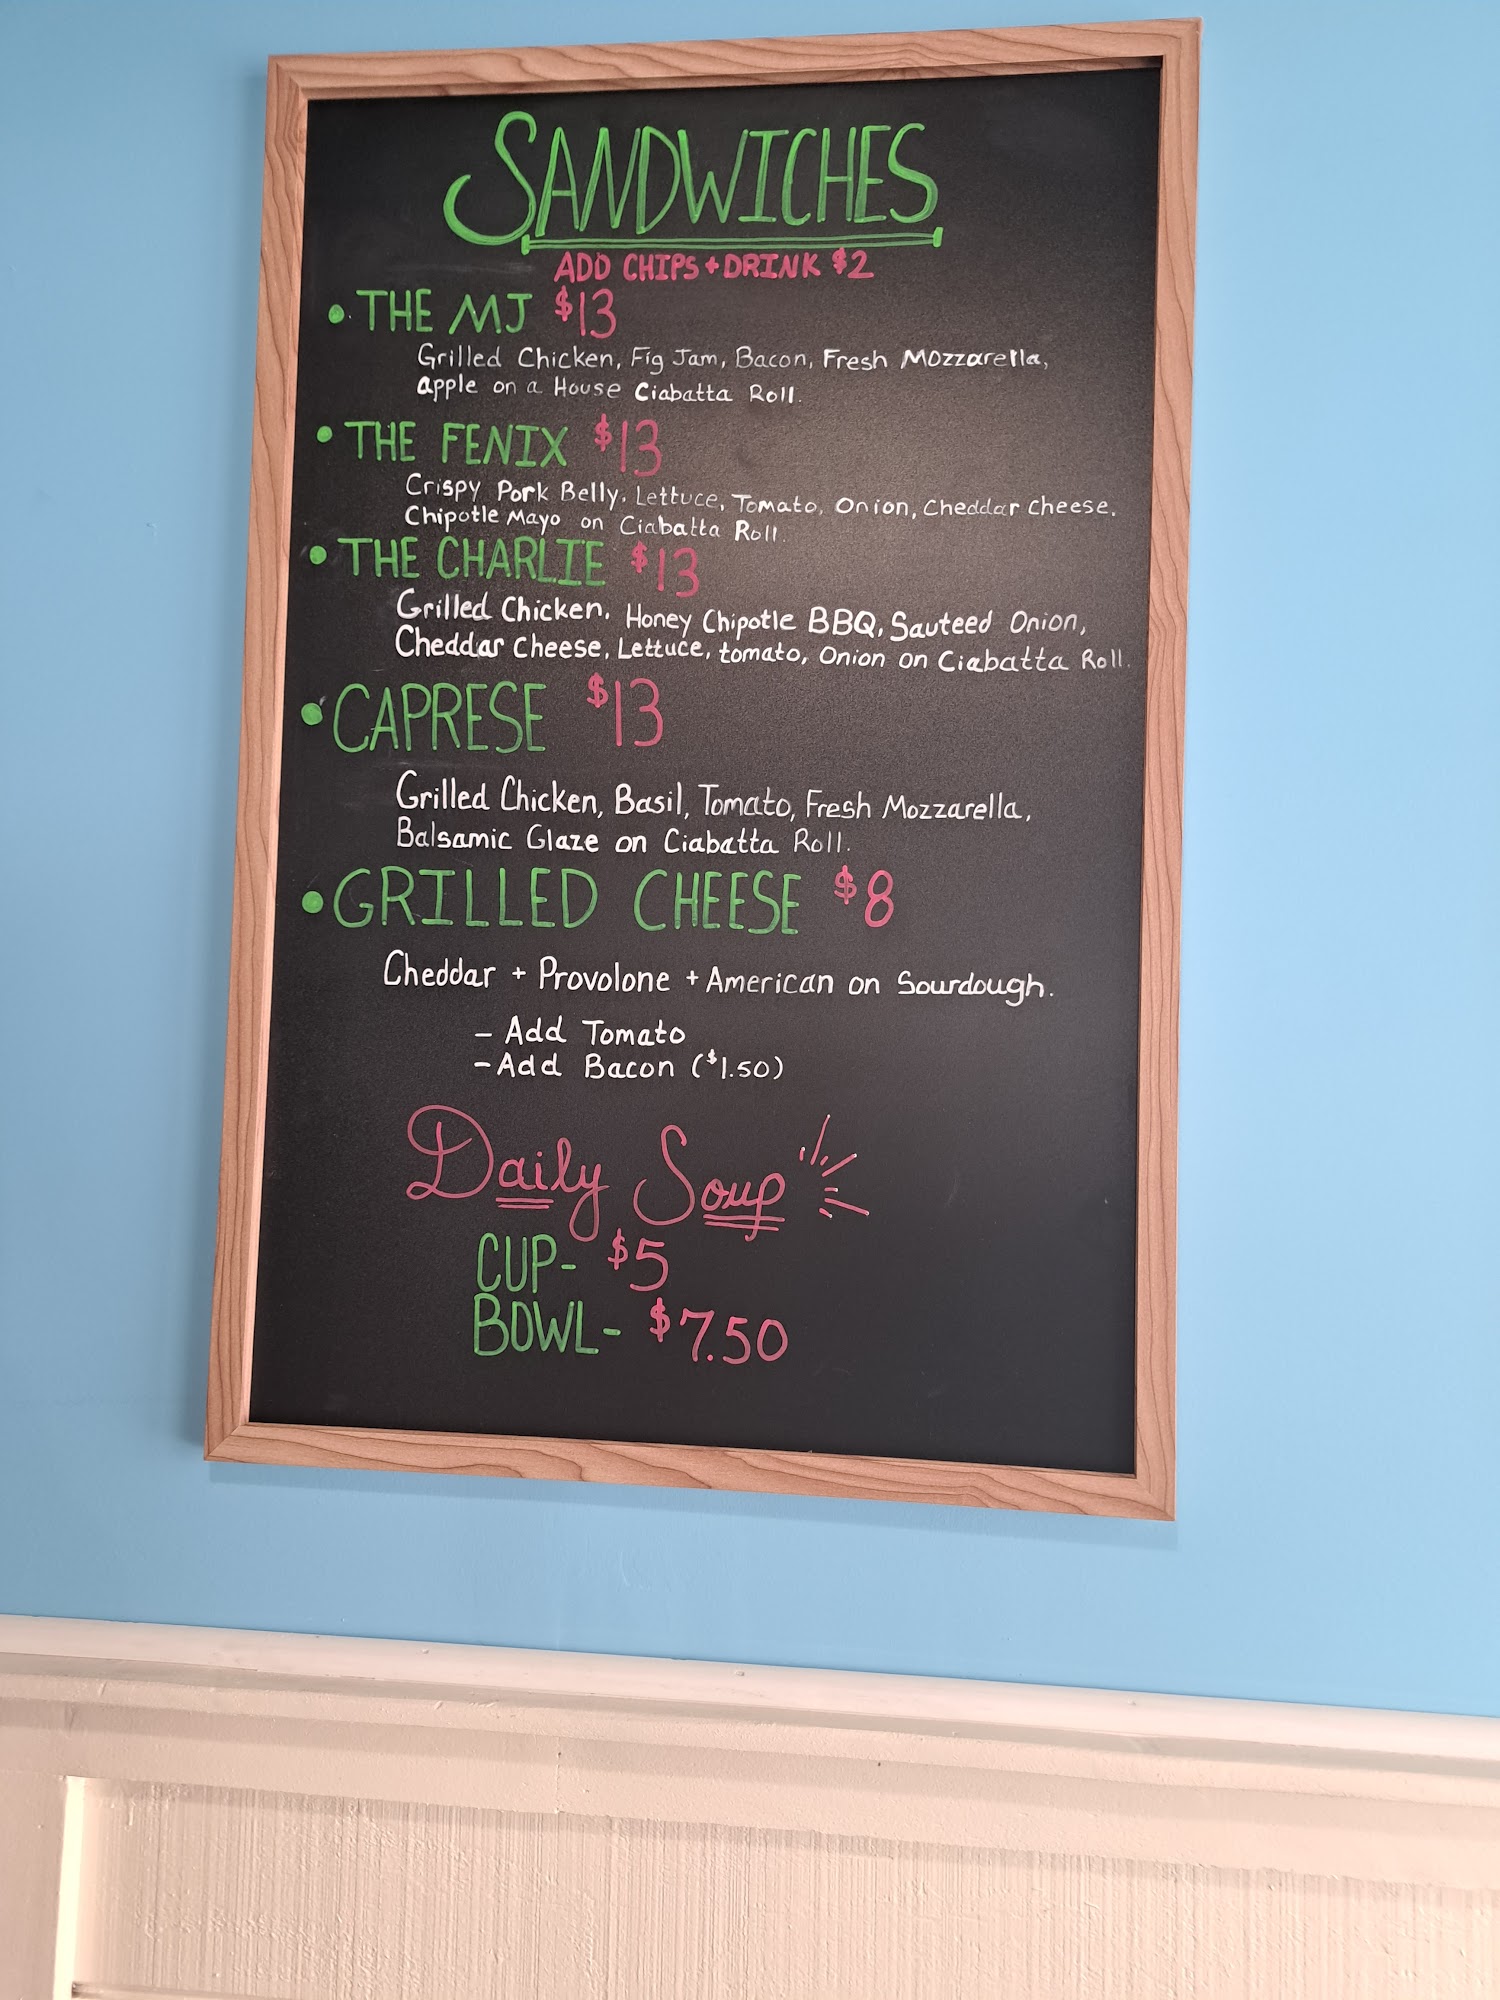 SANDWICHES
ADD CHIPS + DRINK $2
• THE MJ $13
Grilled Chicken, Fig Jam, Bacon, Fresh Mozzarella,
apple on a House Ciabatta Roll.
• THE FENIX $13
Crispy Pork Belly, Lettuce, Tomato, Onion, Cheddar Cheese.
Chipotle Mayo on Ciabatta Roll.
• THE CHARLIE $13
Grilled Chicken, Honey Chipotle BBQ, Sauteed Onion,
Cheddar Cheese, Lettuce, tomato, Onion on Ciabatta Roll.
• CAPRESE $13
Grilled Chicken, Basil, Tomato, Fresh Mozzarella,
Balsamic Glaze on Ciabatta Roll.
• GRILLED CHEESE $8
Cheddar + Provolone + American on Sourdough.
- Add Tomato
- Add Bacon ($1.50)
Daily Soup
CUP- $5
BOWL- $7.50